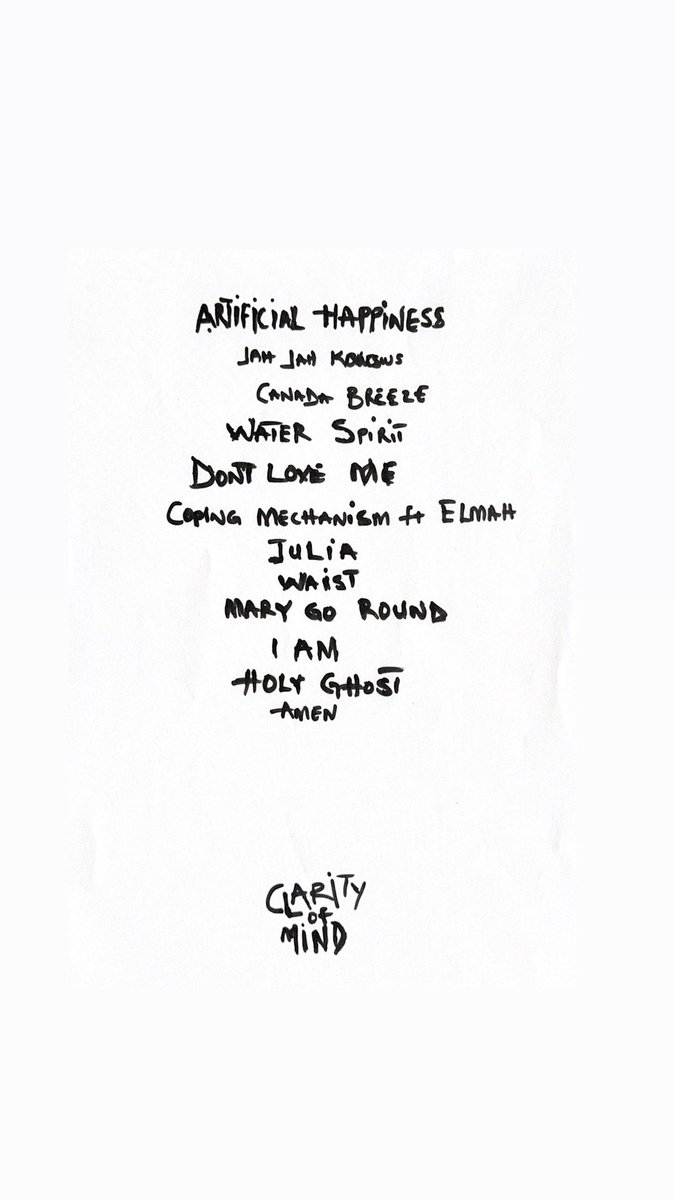 ARTIFICIAL HAPPINESS
JAH JAH KONOWS
CANADA BREEZE
WATER SPIRIT
DONT LOVE ME
COPING MECHANISM ft ELMAH
JULIA
WAIST
MARY GO ROUND
I AM
HOLY GHOST
AMEN
CLARITY
OF
MIND